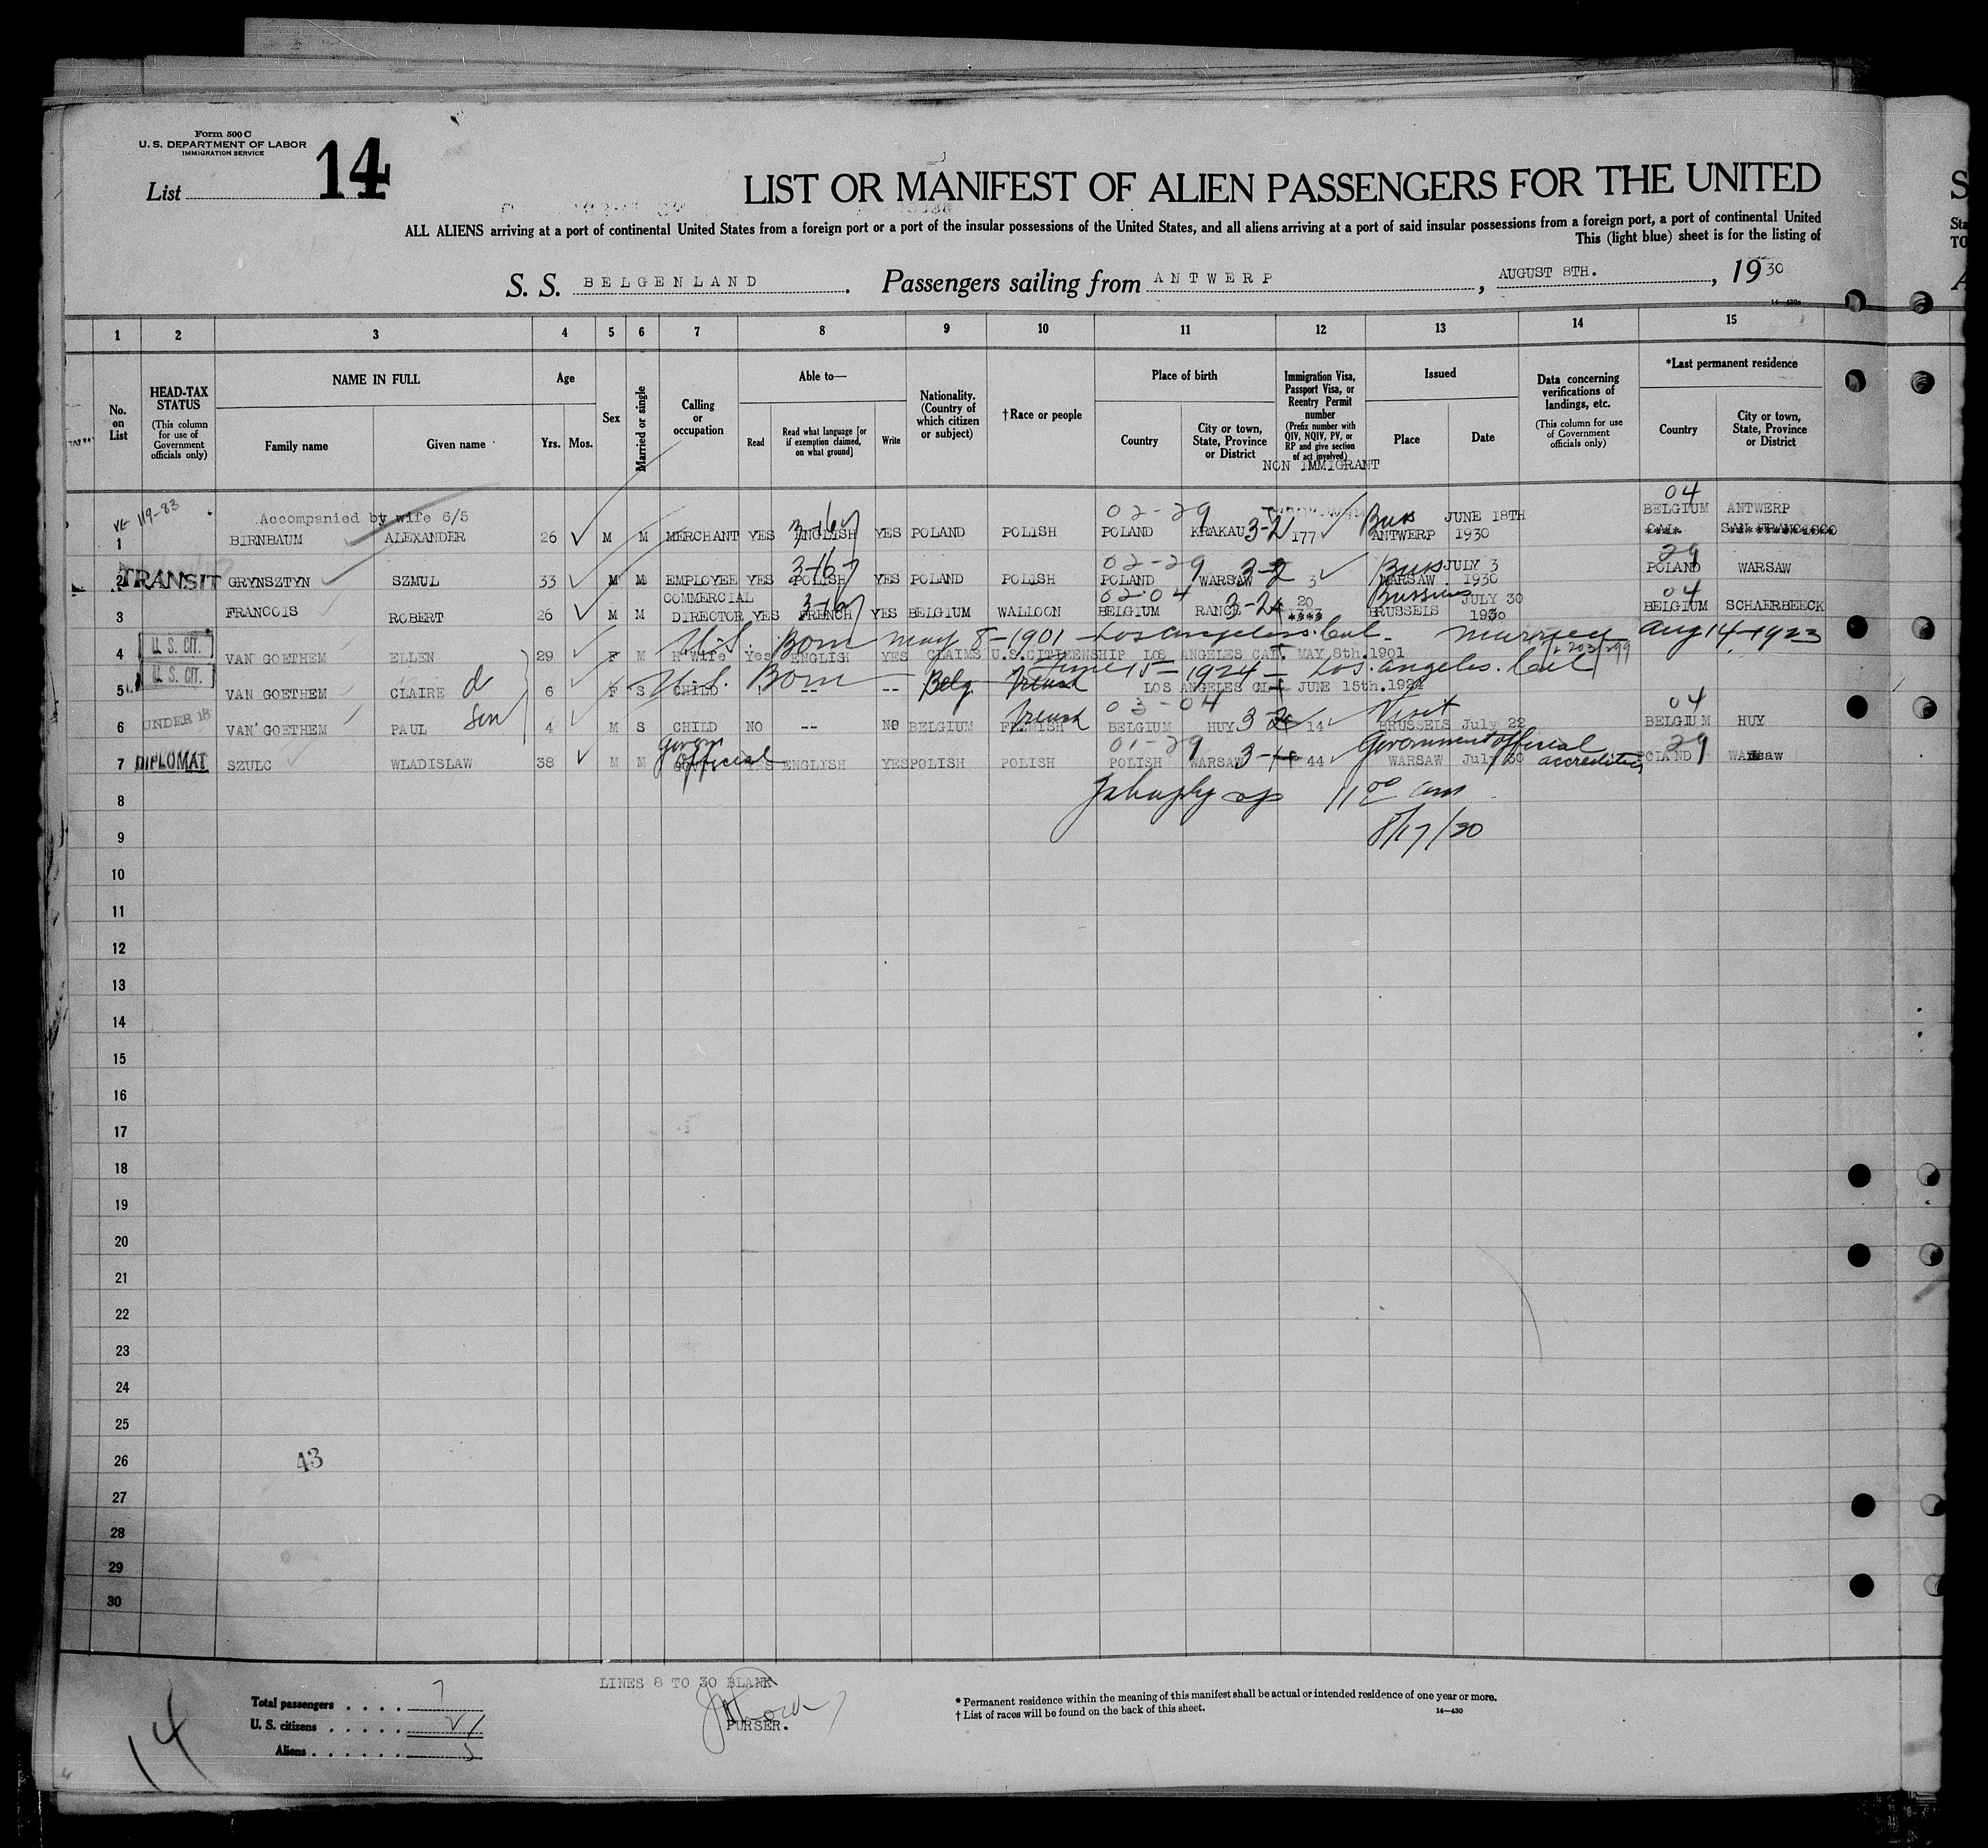 Form 500 C
U. S. DEPARTMENT OF LABOR
IMMIGRATION SERVICE
List 14
LIST OR MANIFEST OF ALIEN PASSENGERS FOR THE UNITED
ALL ALIENS arriving at a port of continental United States from a foreign port or a port of the insular possessions of the United States, and all aliens arriving at a port of said insular possessions from a foreign port, a port of continental United
This (light blue) sheet is for the listing of
S. S. BELGENLAND. Passengers sailing from ANTWERP, AUGUST 8TH., 1930
1 2 3 4 5 6 7 8 9 10 11 12 13 14 15
No. on List
HEAD-TAX STATUS (This column for use of Government officials only)
NAME IN FULL
Family name
Given name
Age
Yrs. Mos.
Sex
Married or single
Calling or occupation
Able to—
Read
Read what language [or if exemption claimed, on what ground]
Write
Nationality. (Country of which citizen or subject)
†Race or people
Place of birth
Country
City or town, State, Province or District
Immigration Visa, Passport Visa, or Reentry Permit number (Prefix number with QIV, NQIV, PV, or RP and give section of act involved)
NON IMMIGRANT
Issued
Place
Date
Data concerning verifications of landings, etc. (This column for use of Government officials only)
*Last permanent residence
Country
City or town, State, Province or District
119-83 Accompanied by wife 6/5 02-29 JUNE 18TH 04 BELGIUM ANTWERP
1 BIRNBAUM ALEXANDER 26 M M MERCHANT YES ENGLISH YES POLAND POLISH POLAND KRAKAU 3-2 177 Buss ANTWERP 1930 SAN FRANCISCO
3-16 02-29 JULY 3 29
2 TRANSIT GRYNSZTYN SZMUL 33 M M EMPLOYEE YES POLISH YES POLAND POLISH POLAND WARSAW 3-2 3 Buss WARSAW 1930 POLAND WARSAW
COMMERCIAL 3-16 02-04 20 JULY 30 04
3 FRANCOIS ROBERT 26 M M DIRECTOR YES FRENCH YES BELGIUM WALLOON BELGIUM RANCE 3-2 BRUSSELS 1930 BELGIUM SCHAERBEECK
U. S. CIT. U.S. Born May 8-1901 - Los Angeles. Cal. Aug 14-1923
4 VAN GOETHEM ELLEN 29 F M H Wife Yes ENGLISH YES CLAIMS U.S.CITIZENSHIP LOS ANGELES CAL. MAY 8th.1901
U. S. CIT. U.S. Born June 15-1924 - Los. Angeles. Cal
5 VAN GOETHEM CLAIRE d 6 F S CHILD -- -- Belg French LOS ANGELES CL JUNE 15th.1924
UNDER 18 son French 03-04 Visit 04
6 VAN GOETHEM PAUL 4 M S CHILD NO -- NO BELGIUM FLEMISH BELGIUM HUY 3-2 14 BRUSSELS July 22 BELGIUM HUY
Govern Official 01-29 Government official accredited 29
7 DIPLOMAT SZULC WLADISLAW 38 M M YES ENGLISH YES POLISH POLISH POLISH WARSAW 3-1 44 WARSAW July 30 POLAND Warsaw
8 11 00 am
9 8/17/30
10
11
12
13
14
15
16
17
18
19
20
21
22
23
24
25
26 43
27
28
29
30
LINES 8 TO 30 BLANK
PURSER.
Total passengers . . . . 7
U. S. citizens . . . . . 2
Aliens . . . . . . 5
14
* Permanent residence within the meaning of this manifest shall be actual or intended residence of one year or more.
† List of races will be found on the back of this sheet.
14—430